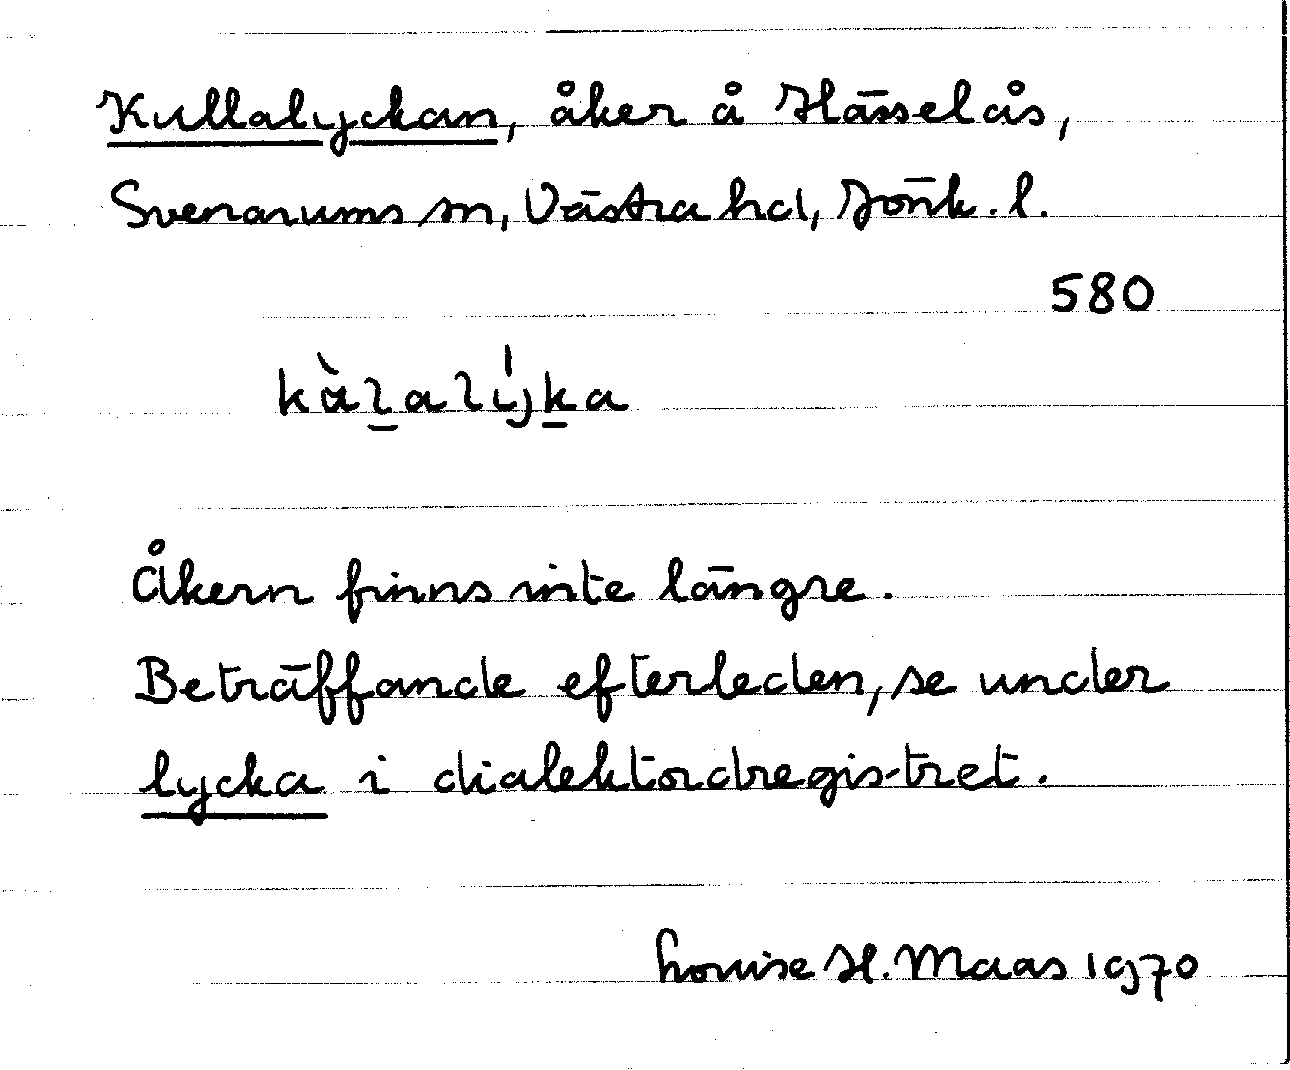 Kullalyckan, åker å Hässelås,
Svenarums sn, Västra hd, Jönk. l.
580
Åkern finns inte längre.
Beträffande efterleden, se under
lycka i dialektordregistret.
Louise H. Maas 1970